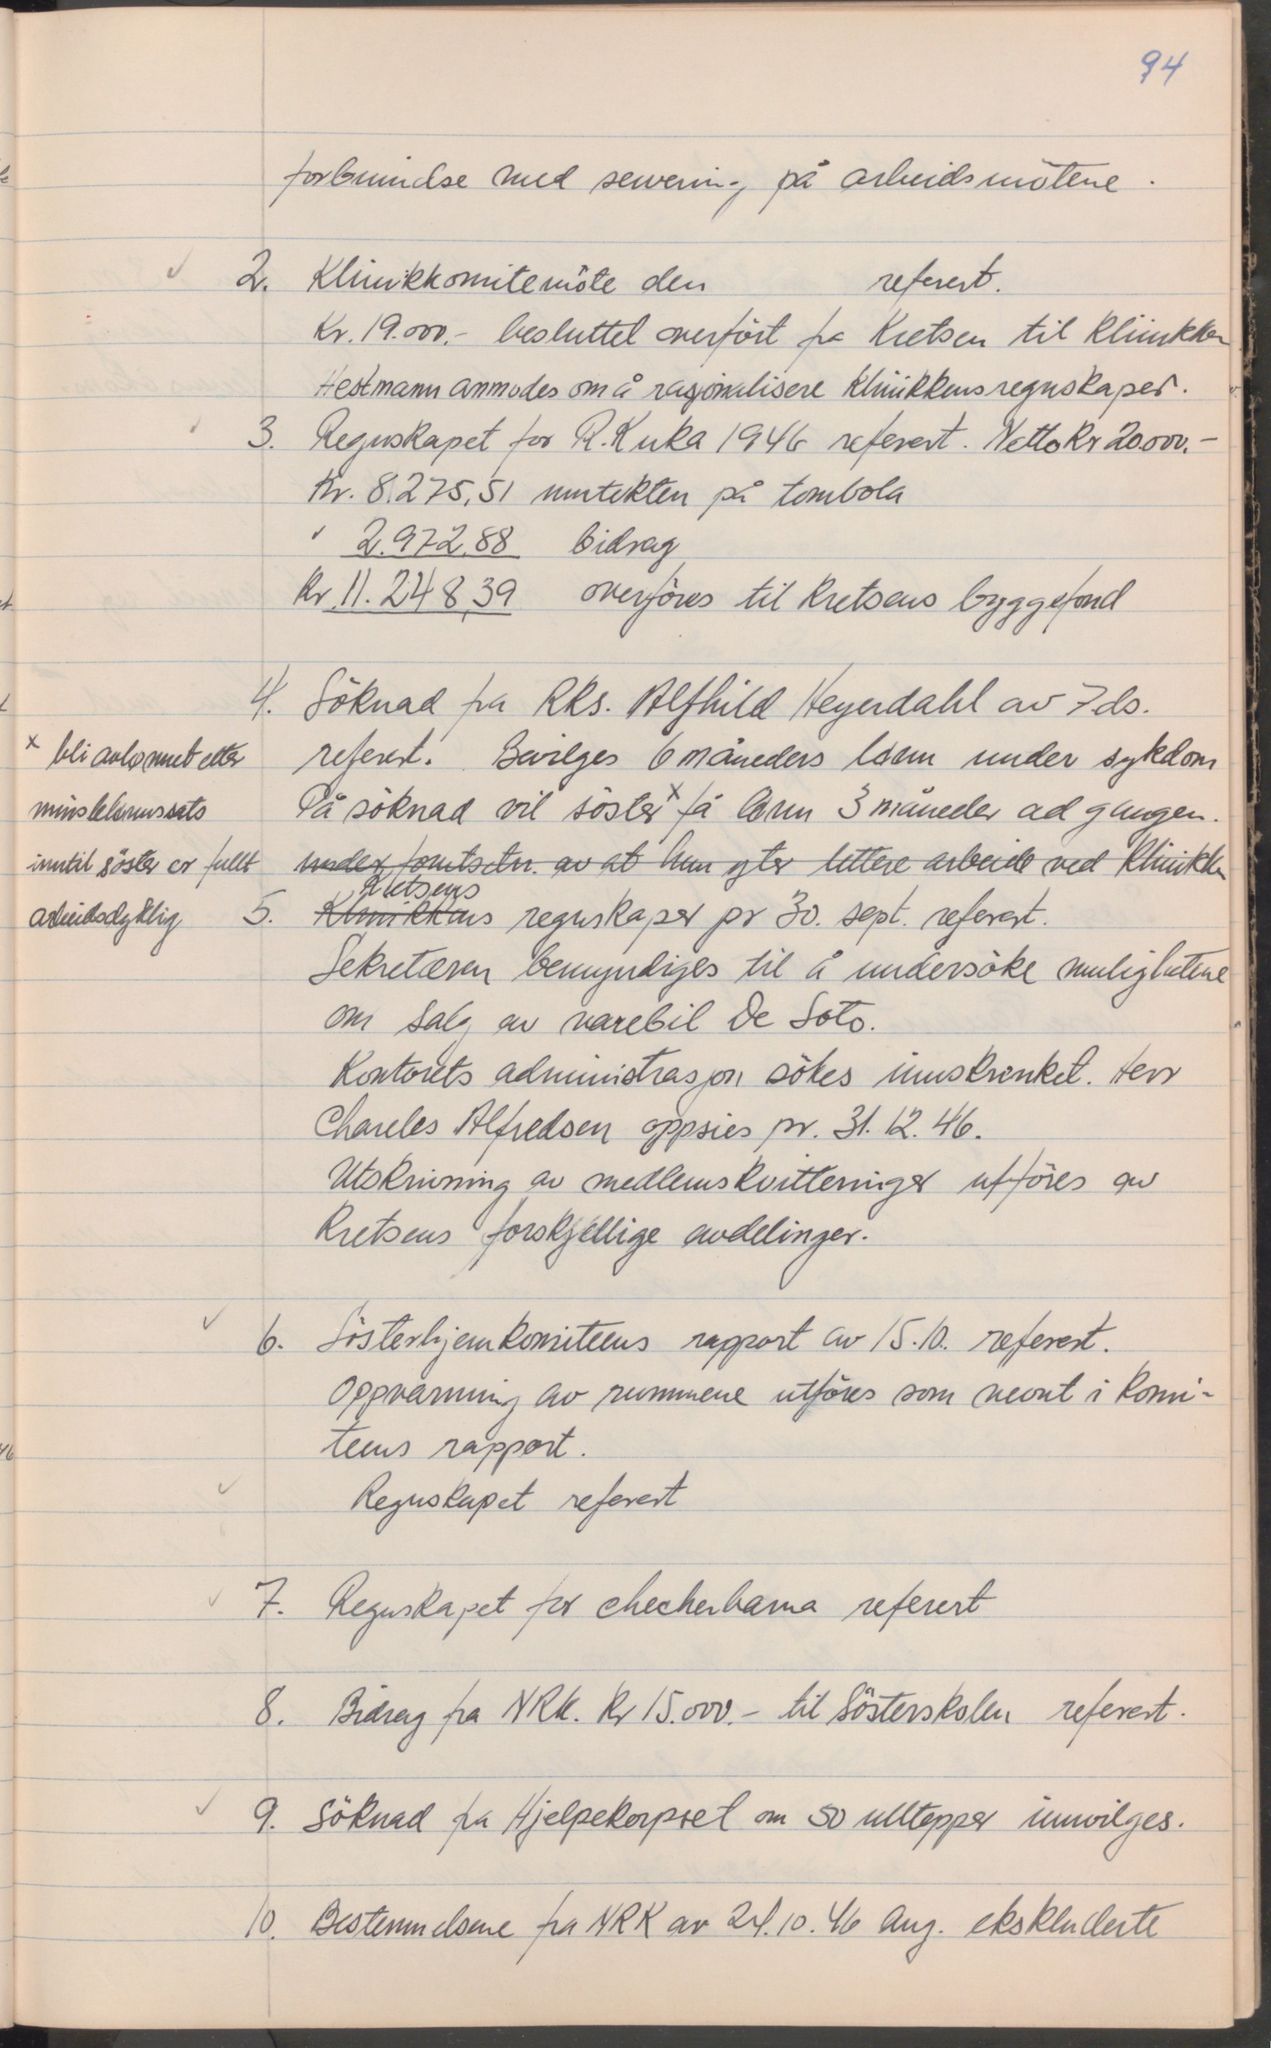 94
forbindelse med servering på arbeidsmötene.
2. Klinikkomitemöte den referert.
Kr. 19.000.- besluttet overfört fra Kretsen til Klinikken
Hestmann anmodes om å rasjonalisere Klinikkens regnskaper.
3. Regnskapet for R.Kuka 1946 referert. Netto Kr 20.000.-
Kr. 8.275,51 inntekten på tombola
" 2.972,88 bidrag
Kr. 11.248,39 overföres til Kretsens byggefond
4. Söknad fra RKs. Alfhild Heyerdahl av 7 ds.
referert. Bevilges 6 måneders lönn under sykdom
På söknad vil söster x få lönn 3 måneder ad gangen.
x bli avlönnet etter
minstelönnssats
inntil söster er fullt
arbeidsdyktig
under forutsetn. av at hun yter lettere arbeide ved Klinikken
Kretsens
5. Klinikkens regnskaper pr 30. sept. referert.
Sekretæren bemyndiges til å undersöke mulighetene
om salg av varebil De Soto.
Kontorets administrasjon sökes innskrenket. Herr
Chareles Alfredsen oppsies pr. 31.12.46.
Utskrivning av medlemskvitteringer utföres av
Kretsens forskjellige avdelinger.
6. Sösterhjemkomiteens rapport av 15.10. referert.
Oppvarming av rummene utföres som nevnt i komi-
teens rapport.
Regnskapet referert
7. Regnskapet for checkerbarna referert
8. Bidrag fra NRK. Kr 15.000.- til Sösterskolen referert.
9. Söknad fra Hjelpekorpset om 50 ulltepper innvilges.
10. Bestemmelsene fra NRK av 24.10.46 ang. ekskluderte